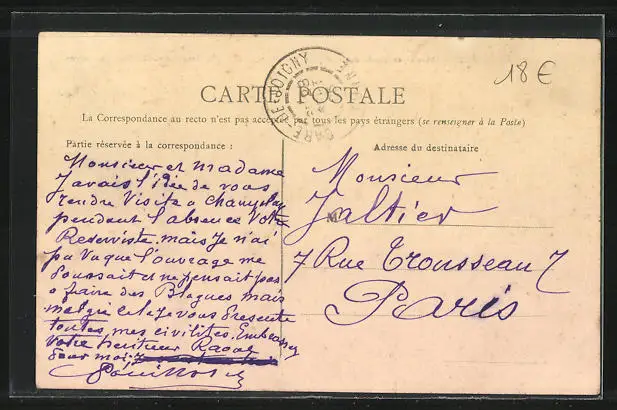 18 €
GARE-DE-JOIGNY
CARTE POSTALE
La Correspondance au recto n'est pas acceptée par tous les pays étrangers (se renseigner à la Poste)
Partie réservée à la correspondance :
Monsieur et madame
Javais l'idée de vous
rendre Visite a
pendant l'absence Votre
Reserviste. mais Je n'ai
pu Vu que l'ouvrage me
Poussait et ne pensait pas
a faire des Blagues mais
malgré cela je vous Présente
toutes mes civilités. Embrassez
Votre heritier Raoul
pour moi.
Adresse du destinataire
Monsieur
M
Jaltier
7 Rue Trousseau 7
Paris